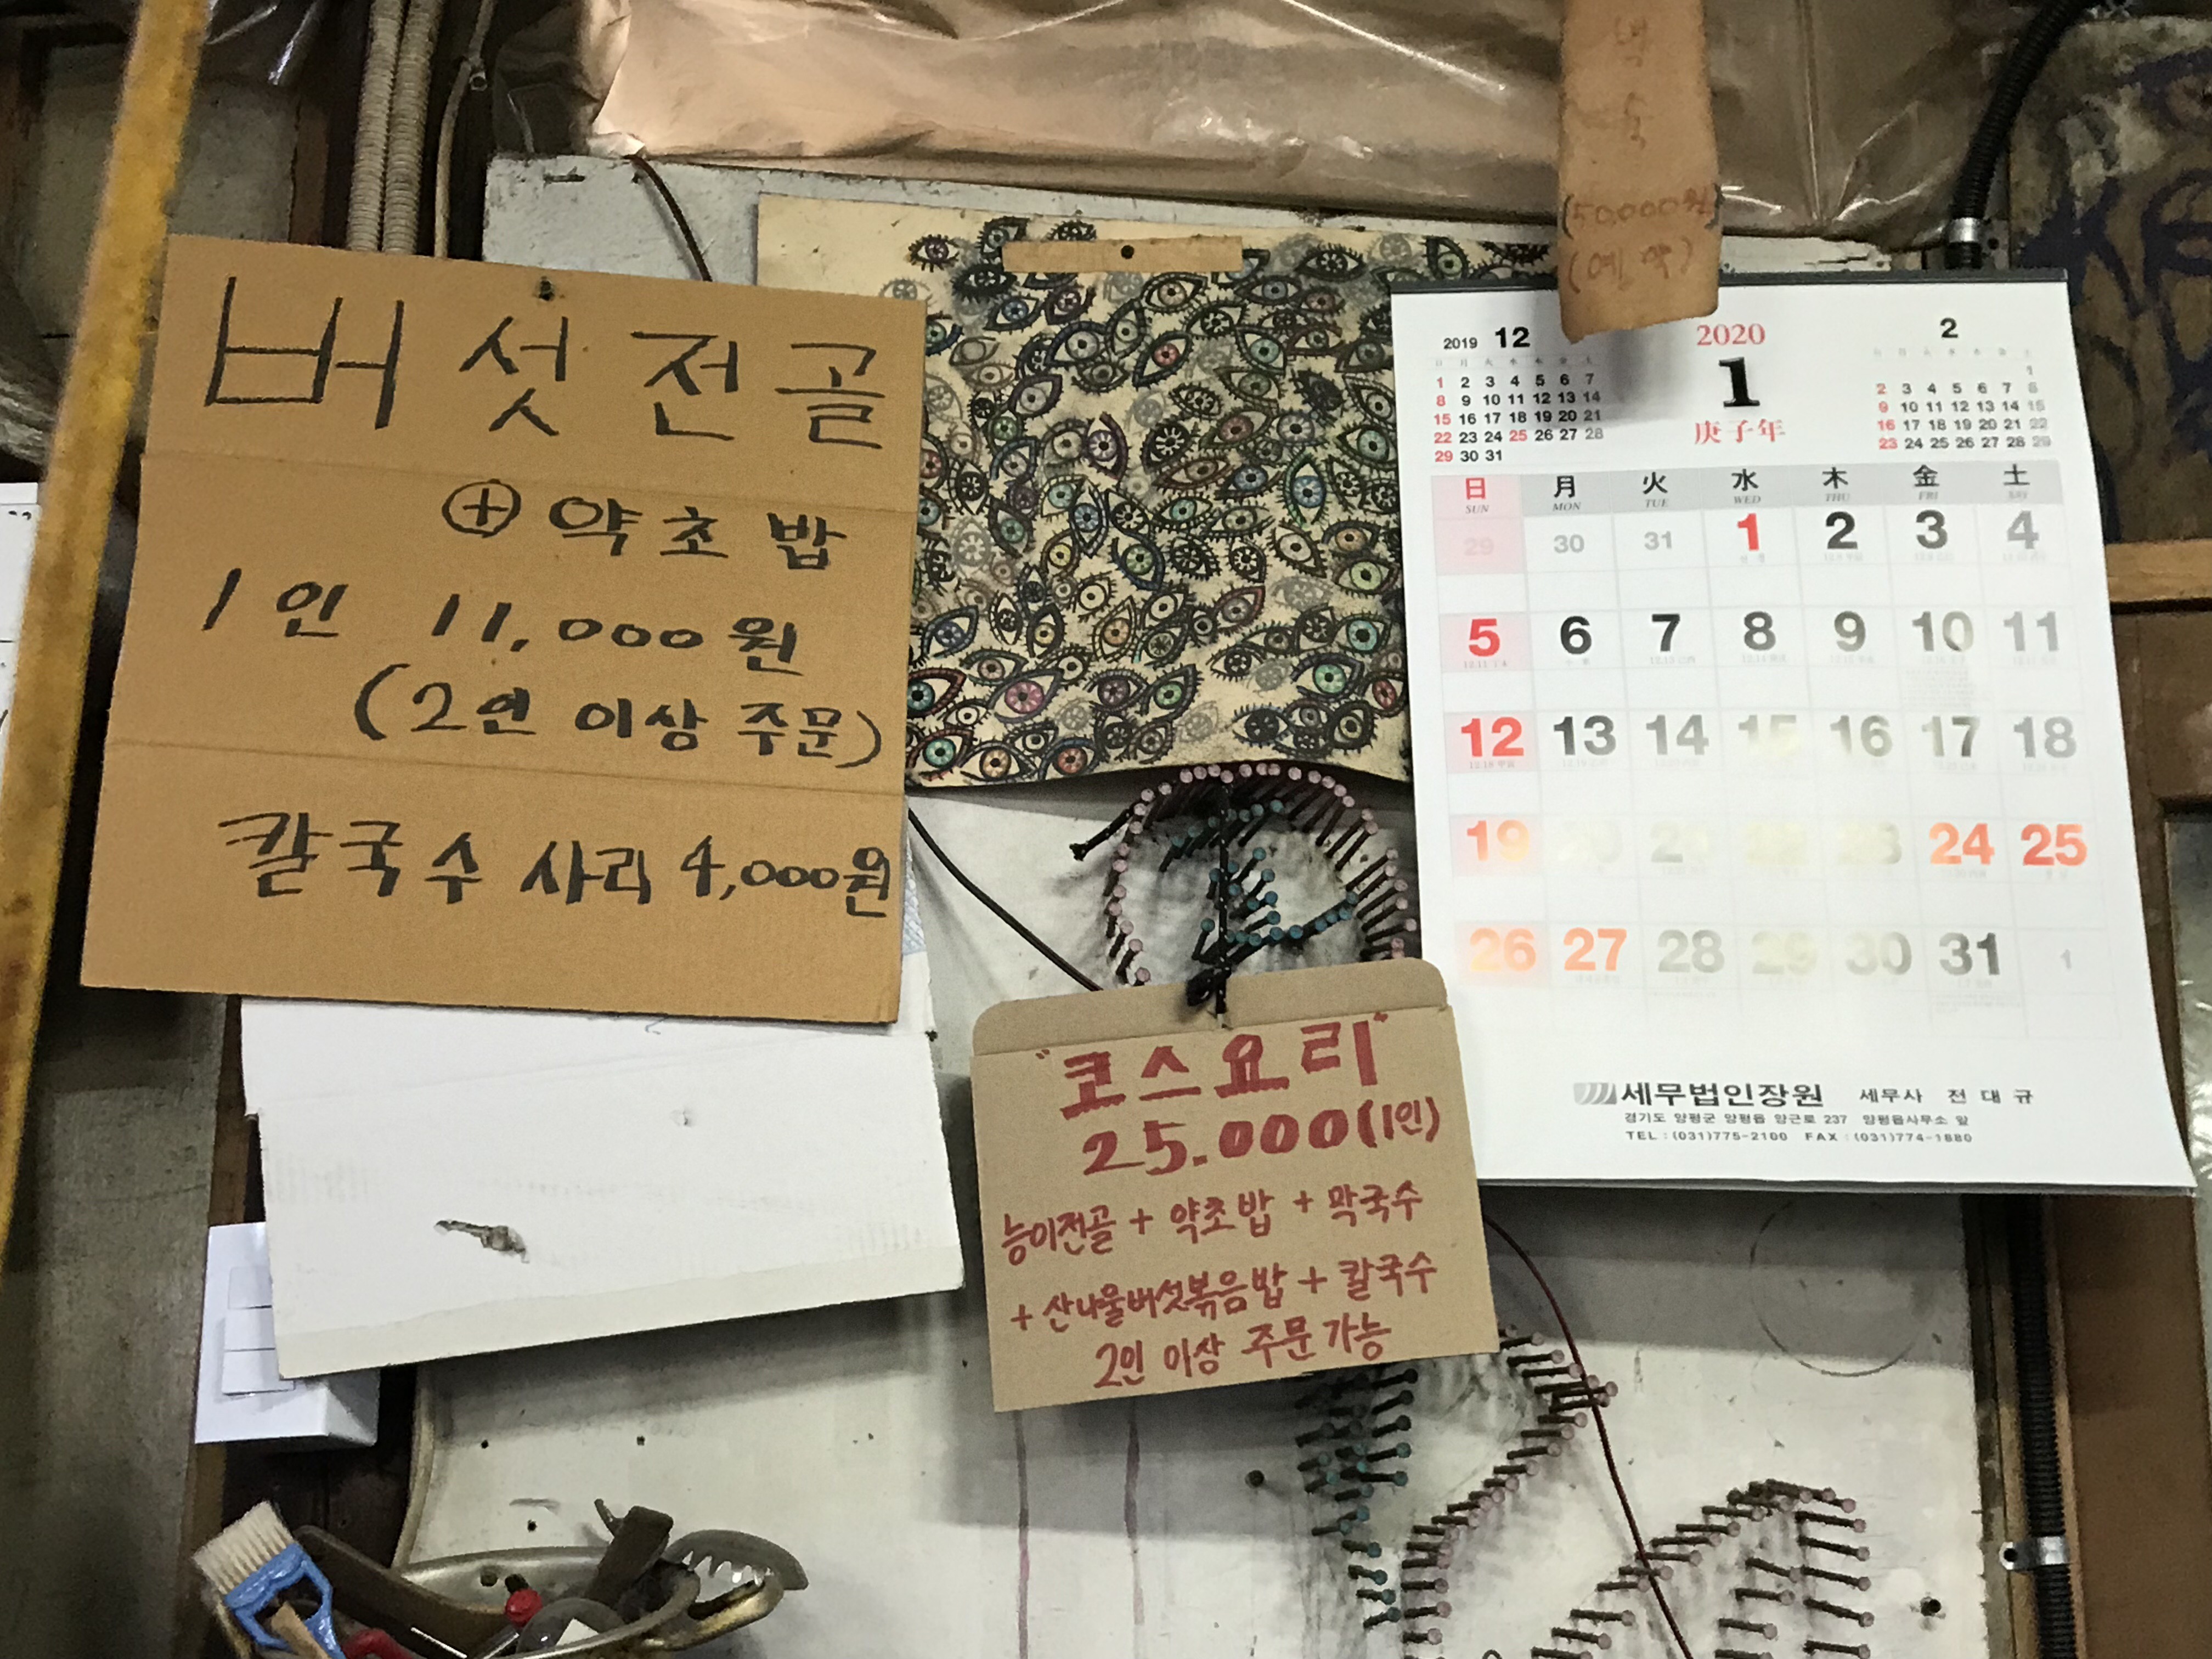 버섯전골
⊕ 약초밥
1인 11,000원
(2인 이상 주문)
칼국수 사리 4,000원
백숙
(50,000원)
(예약)
"코스요리"
25.000(1인)
능이전골 + 약초밥 + 막국수
+ 산나물버섯볶음밥 + 칼국수
2인 이상 주문 가능
2019 12
1 2 3 4 5 6 7
8 9 10 11 12 13 14
15 16 17 18 19 20 21
22 23 24 25 26 27 28
29 30 31
2020
1
庚子年
2
1
2 3 4 5 6 7 8
9 10 11 12 13 14 15
16 17 18 19 20 21 22
23 24 25 26 27 28 29
日 月 火 水 木 金 土
SUN MON TUE WED THU FRI SAT
29 30 31 1 2 3 4
5 6 7 8 9 10 11
12 13 14 15 16 17 18
19 20 21 22 23 24 25
26 27 28 29 30 31 1
세무법인장원 세무사 전대규
경기도 양평군 양평읍 양근로 237 양평읍사무소 앞
TEL : (031)775-2100 FAX : (031)774-1880